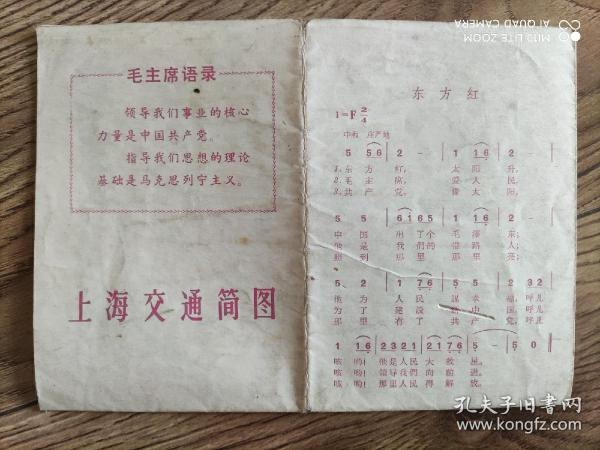 毛主席语录
领导我们事业的核心
力量是中国共产党。
指导我们思想的理论
基础是马克思列宁主义。
上海交通简图
东方红
1=F 2/4
中板 庄严地
5 56 | 2 - | 1 16 | 2 - |
1.东方 红, 太阳 升,
2.毛主 席, 爱人 民,
3.共产 党, 像太 阳,
5 5 | 6165 | 1 16 | 2 - |
中国 出了个 毛泽 东;
他是 我们的 带路 人;
照到 那里 那里 亮;
5 2 | 1 76 | 5 5 | 2 32 |
他为 人民 谋幸 福, 呼儿
为了 建设 新中 国, 呼儿
那里 有了 共产 党, 呼儿
1 16 | 2321 | 2176 | 5 - | 5 0 ‖
咳哟! 他是人民 大救 星。
咳哟! 领导我們 向前 进。
咳哟! 那里人民 得解 放。
MI 10 LITE ZOOM
AI QUAD CAMERA
孔夫子旧书网
www.kongfz.com